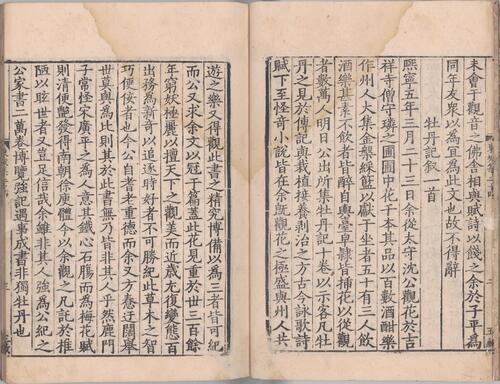 未會于觀音之佛舍相與賦詩以餞之余於子平爲
同年友衆以爲宜爲此文也故不得辭
牡丹記叙一首
熙寧五年三月二十三日余從太守沈公觀花於吉
祥寺僧守璘之圃圃中花千本其品以百數酒酣樂
作州人大集金槃綵籃以獻于坐者五十有三人飲
酒樂甚素不飲者皆醉自輿臺皁隸皆插花以從觀
者數萬人明日公出所集牡丹記十卷以示客凡牡
丹之見於傳記與栽植接養剥治之方古今詠歌詩
賦下至怪奇小説皆在余旣觀花之極盛與州人共
遊之樂又得觀此書之精究博備以爲三者皆可紀
而公又求余文以冠于篇蓋此花見重於世三百餘
年窮妖極麗以擅天下之觀美而近歲尤復變態百
出務爲新奇以追逐時好者不可勝紀此草木之智
巧便佞者也今公自耆老重德而余又方惷迂闊舉
世莫與爲比則其於此書無乃皆非其人乎然鹿門
子常怪宋廣平之爲人意其鐵心石腸而爲梅花賦
則清便艷發得南朝徐庾體今以余觀之凡託於椎
陋以眩世者又豈足信哉余雖非其人強爲公紀之
公家書三萬卷博覽強記遇事成書非獨牡丹也